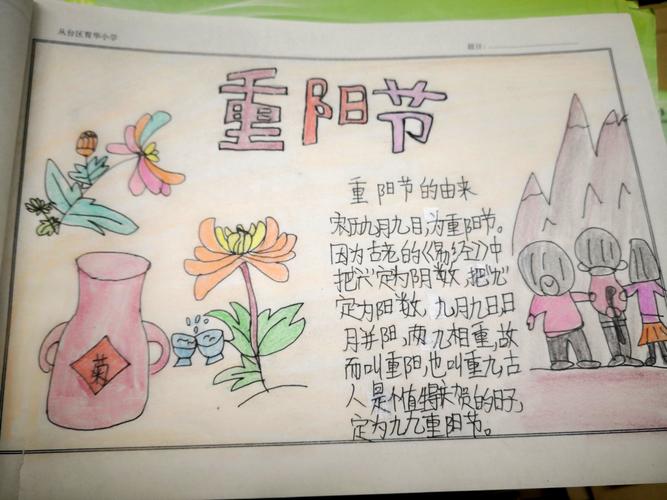 丛台区育华小学
题目:
重阳节
重阳节的由来
农历九月九日,为重阳节。
因为古老的《易经》中
把"六"定为阴数,把"九"
定为阳数,九月九日,日
月并阳,两九相重,故
而叫重阳,也叫重九,古
人是个值得庆贺的日子,
定为九九重阳节。
菊